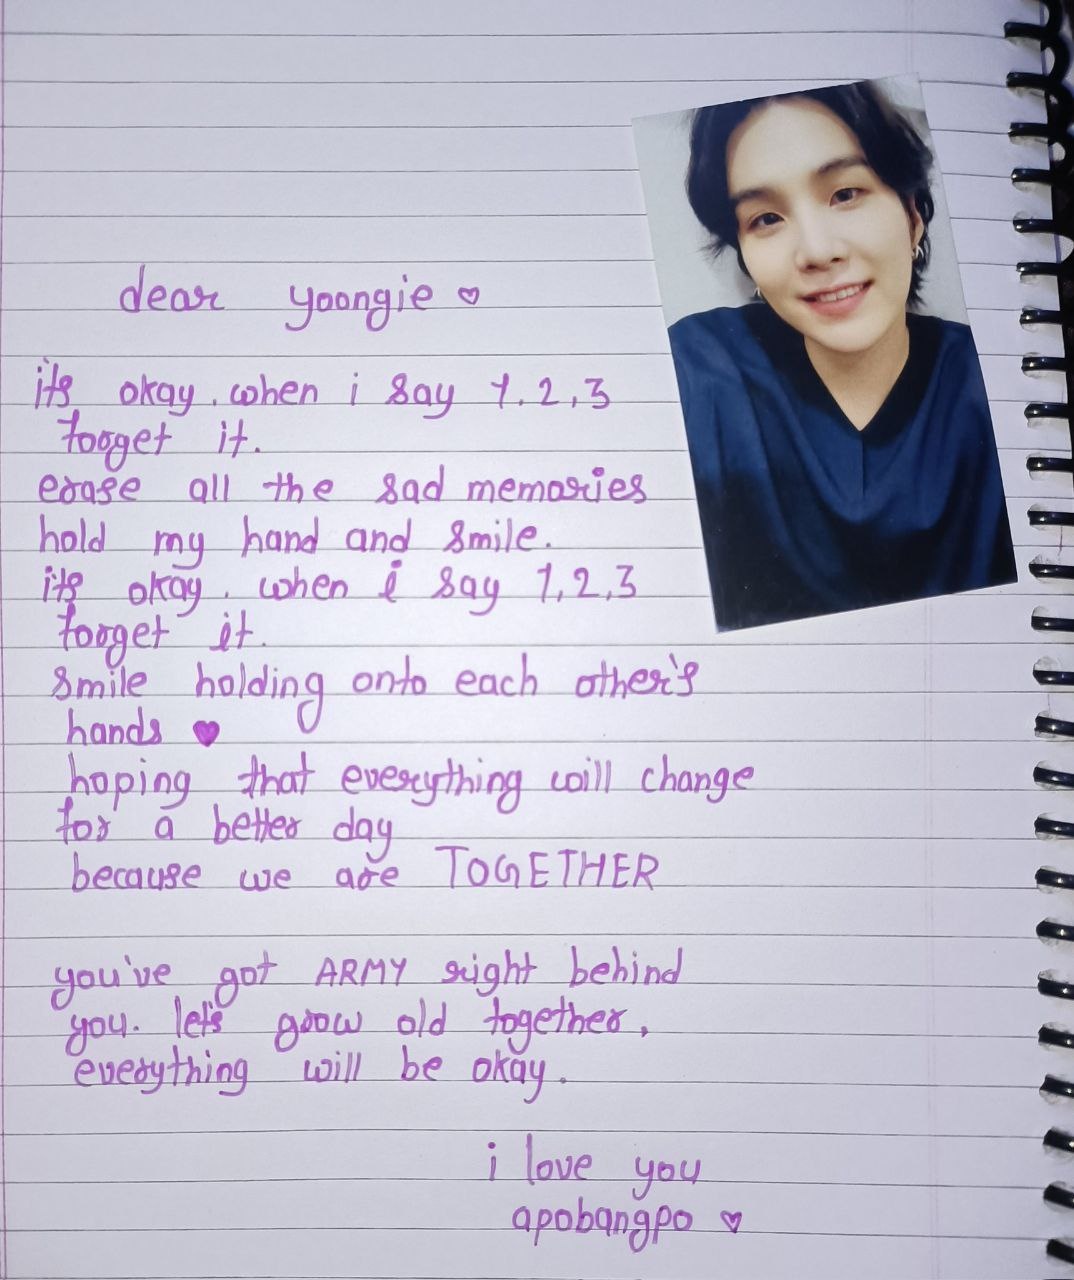 dear yoongie ♡
its okay. when i say 1, 2, 3
forget it.
erase all the sad memories
hold my hand and smile.
its okay. when i say 1, 2, 3
forget it.
smile holding onto each other's
hands ♥
hoping that everything will change
for a better day
because we are TOGETHER
you've got ARMY right behind
you. let's grow old together.
everything will be okay.
i love you
apobangpo ♡